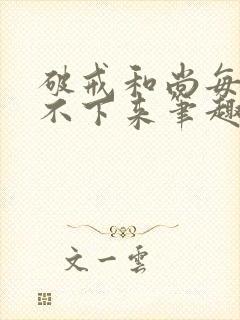 破戒和尚每
不下来笔趣
文一云